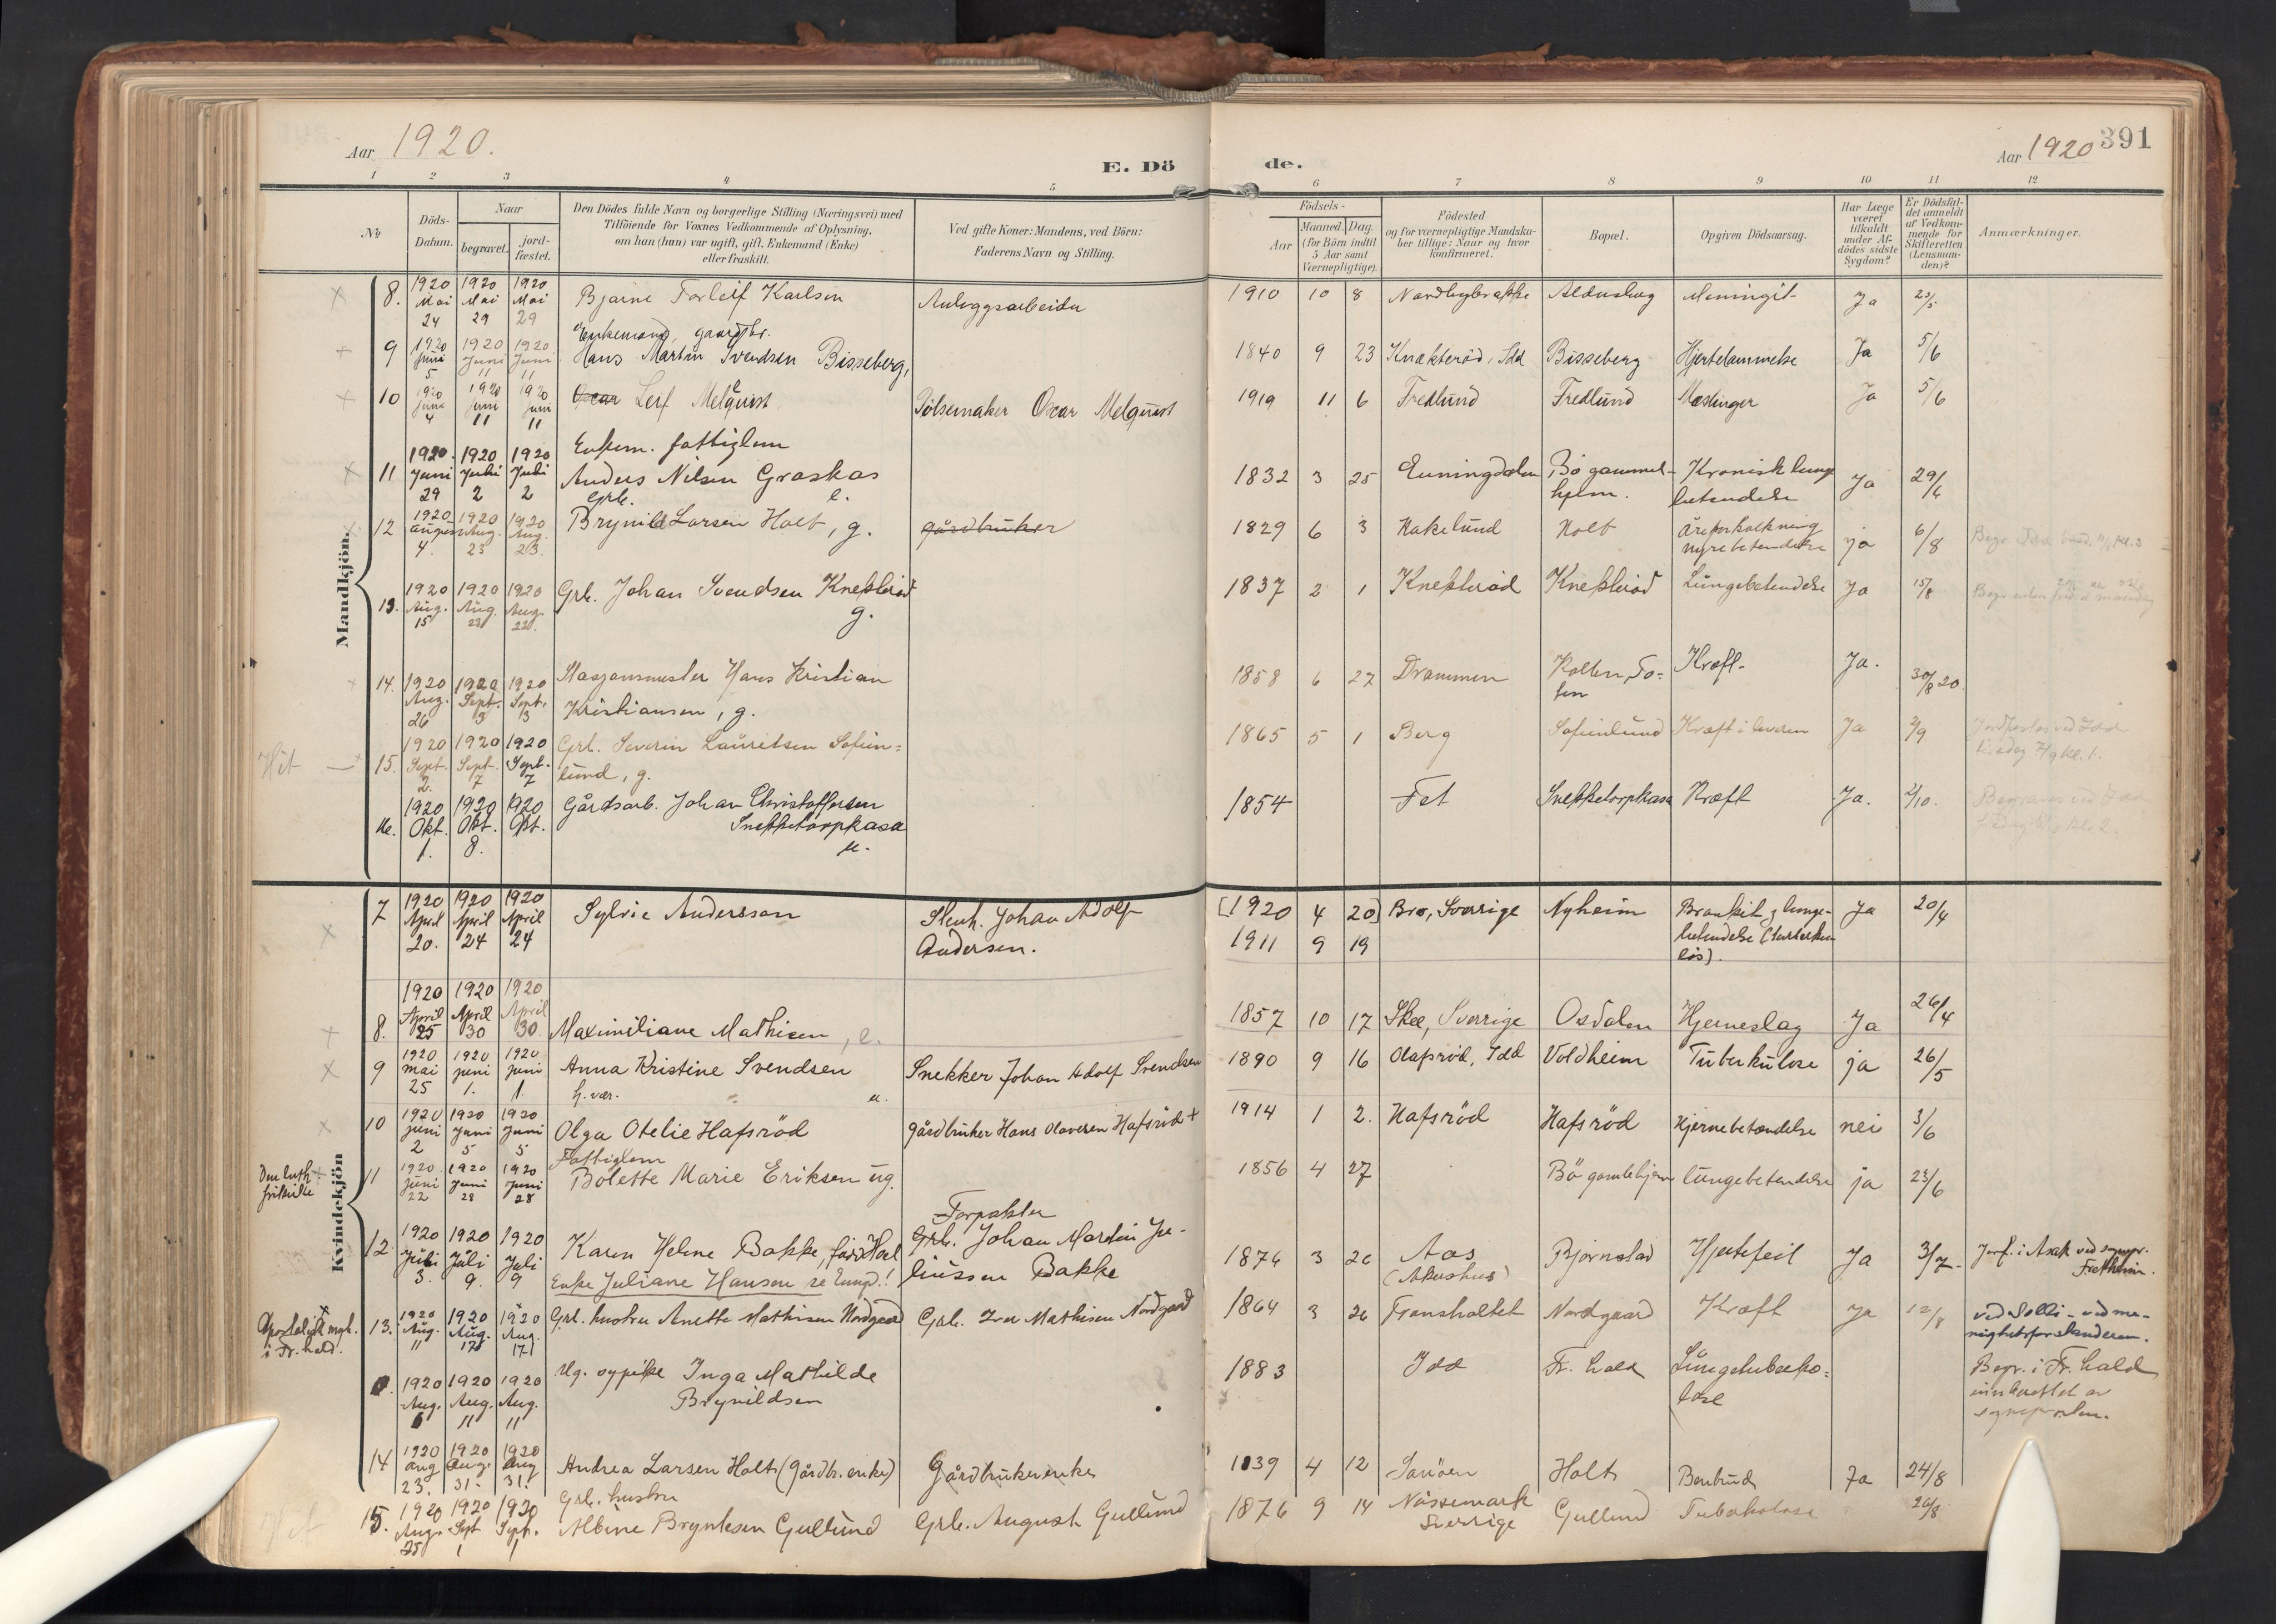 Aar 1920.
E. Dö
de.
Aar 1920
391
1 2 3 4 5 6 7 8 9 10 11 12
No
Döds-Datum.
Naar
begravet.
jord-fæstet.
Den Dödes fulde Navn og borgerlige Stilling (Næringsvei) med
Tilföiende for Voxnes Vedkommende af Oplysning,
om han (hun) var ugift, gift, Enkemand (Enke)
eller fraskilt.
Ved gifte Koner: Mandens, ved Börn:
Faderens Navn og Stilling.
Födsels-
Aar
Maaned. Dag.
(for Börn indtil
5 Aar samt
Værnepligtige).
Födested
og for værnepligtige Mandska-
ber tillige: Naar og hvor
konfirmeret.
Bopæl.
Opgiven Dödsaarsag.
Har Læge
været
tilkaldt
under Af-
dödes sidste
Sygdom?
Er Dödsfal-
det anmeldt
af Vedkom-
mende for
Skifteretten
(Lensman-
den)?
Anmærkninger.
Mandkjön.
8. 1920 Mai 24 1920 Mai 29 1920 Mai 29 Bjarne Torleif Karlsen Anleggsarbeider 1910 10 8 Meningit- Ja 25/5
Enkemand, gaardbr.
9 1920 Juni 5 1920 Juni 11 1920 Juni 11 Hans Martin Svendsen Bisseberg, 1840 9 23 Knækteröd, Idd Bisseberg Hjertelammelse Ja 5/6
10 1920 Juni 4 1920 Juni 11 1920 Juni 11 Oscar Leif Melquist Pölsemaker Oscar Melquist 1919 11 6 Fredlund Fredlund Mæslinger Ja 5/6
Enkem. fattiglem
11 1920 Juni 29 1920 Juli 2 1920 Juli 2 Anders Nilsen Graskas 1832 3 25 Enningdalen Bö gammel-hjem. Kronisk lunge betendelse Ja 29/6
Grb. e.
12 1920 August 4. 1920 Aug. 23 1920 Aug. 23. Brynild Larsen Holt, g. gårdbruker 1829 6 3 Hakelund Holt Åreforkalkning nyrebetendelse ja 6/8
13. 1920 Aug. 15 1920 Aug. 23 1920 Aug. 23. Grb. Johan Svendsen Knepleröd g. 1837 2 1 Knepleröd Knepleröd Lungebetendelse Ja 15/8
14. 1920 Aug. 26 1920 Sept. 3 1920 Sept. 3 Hans Kristian Kristiansen, g. 1858 6 27 Drammen Kræft- Ja. 30/8 20.
15. 1920 Sept. 2. 1920 Sept. 7 1920 Sept. 7 Grb. Severin Lauritsen Sofien=lund, g. 1865 5 1 Berg Sofienlund Kræft i leveren Ja 2/9
16. 1920 Okt. 1. 1920 Okt. 8. 1920 Okt. Gårdsarb. Johan Christoffersen Sneppetorpkasa u. 1854 Fet Sneppetorpkasa Kræft Ja. 2/10.
Kvindekjön
7 1920 April 20. 1920 April 24 1920 April 24 Sylvie Andersson Stenh. Johan Adolf Andersen. [1920 4 20] 1911 9 19 Bro, Sverrige Nyheim Bronkit & lunge-betendelse Ja 20/4
8. 1920 April 25 1920 April 30 1920 April 30 Maximiliane Mathisen, e. 1857 10 17 Skee, Sverrige Osdalen Hjerneslag Ja 26/4
9 1920 mai 25 1920 juni 1. 1920 juni 1. Anna Kristine Svendsen Snekker Johan Adolf Svendsen 1890 9 16 Olafsröd, Idd Voldheim Tuberkulose ja 26/5
h. vær. u.
10 1920 juni 2 1920 juni 5 1920 juni 5 Olga Otelie Hafsröd gårdbruker Hans Olavesen Hafsröd + 1914 1 2. Hafsröd Hafsröd Hjernebetændelse nei 3/6
Den luth. frikirke
Fattiglem
11 1920 juni 22 1920 juni 28 1920 juni 28 Bolette Marie Eriksen ug. 1856 4 27 Bö gamlehjem lungebetendelse ja 23/6
12. 1920 Juli 3. 1920 Juli 9. 1920 Juli 9 Karen Helene Bakke, född Forpakter Grb. Johan Martin Ju-liussen Bakke 1876 3 26 Aas (Akershus) Bjørnstad Hjertefeil Ja 3/7- Jorf. i Asak ved sognepr. Fretheim.
Enke Juliane Hansen
13. 1920 Aug. 11 1920 Aug. 17 1920 Aug. 17 Grb. hustru Anette Mathisen Nordgaard Grb. Iver Mathisen Nordgaard 1864 3 26 Nordgaard Kræft Ja 12/8 ved Solli - ved me-nighetsforstanderen.
Apostolisk mgh. i Fr.hald.
0. 1920 Aug. 6 1920 Aug. 11 1920 Aug. 11 Ug. sypike Inga Mathilde Brynildsen 1883 Idd Fr.hald Lungetuberko=lose Begr. i Fr.hald innberettet av sognepresten.
14 1920 aug 23. 1920 aug. 31. 1920 aug 31. Andrea Larsen Holt (gårdbr. enke) Gårdbrukerenke 1839 4 12 Holt Benbrud Ja 24/8
Grb. hustru
15. 1920 Aug. 25 1920 Sept 1 1920 Sept. 1 Albine Bryntesen Gullund Grb. August Gullund 1876 9 14 Nössemark Sverrige Gullund Tuberkolose 26/8